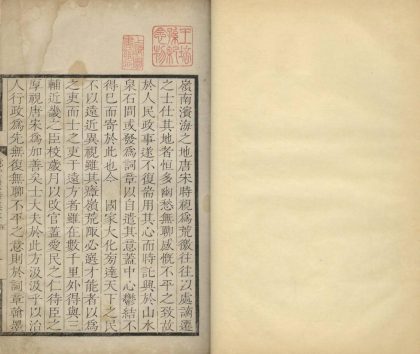 嶺南濱海之地唐宋時視為荒徼往往以處謫遷
之士仕其地者恒多幽愁無聊感慨不平之致故
於人民政事遂不復耑用其心而時託興於山水
泉石間或發為詞章以自遣其意蓋中心鬱結不
得已而寄於此也今　國家大化洵達天下之民
不以遠近異視雖其窮嶺荒陬必選才能者以為
之吏而士之吏于遠方者雖在數千里外得與三
輔近畿之臣校歲月以改官蓋愛民之仁待臣之
厚視唐宋為加善矣士大夫於此方汲汲乎以治
人行政為先無復無聊不平之意則於詞章翰墨